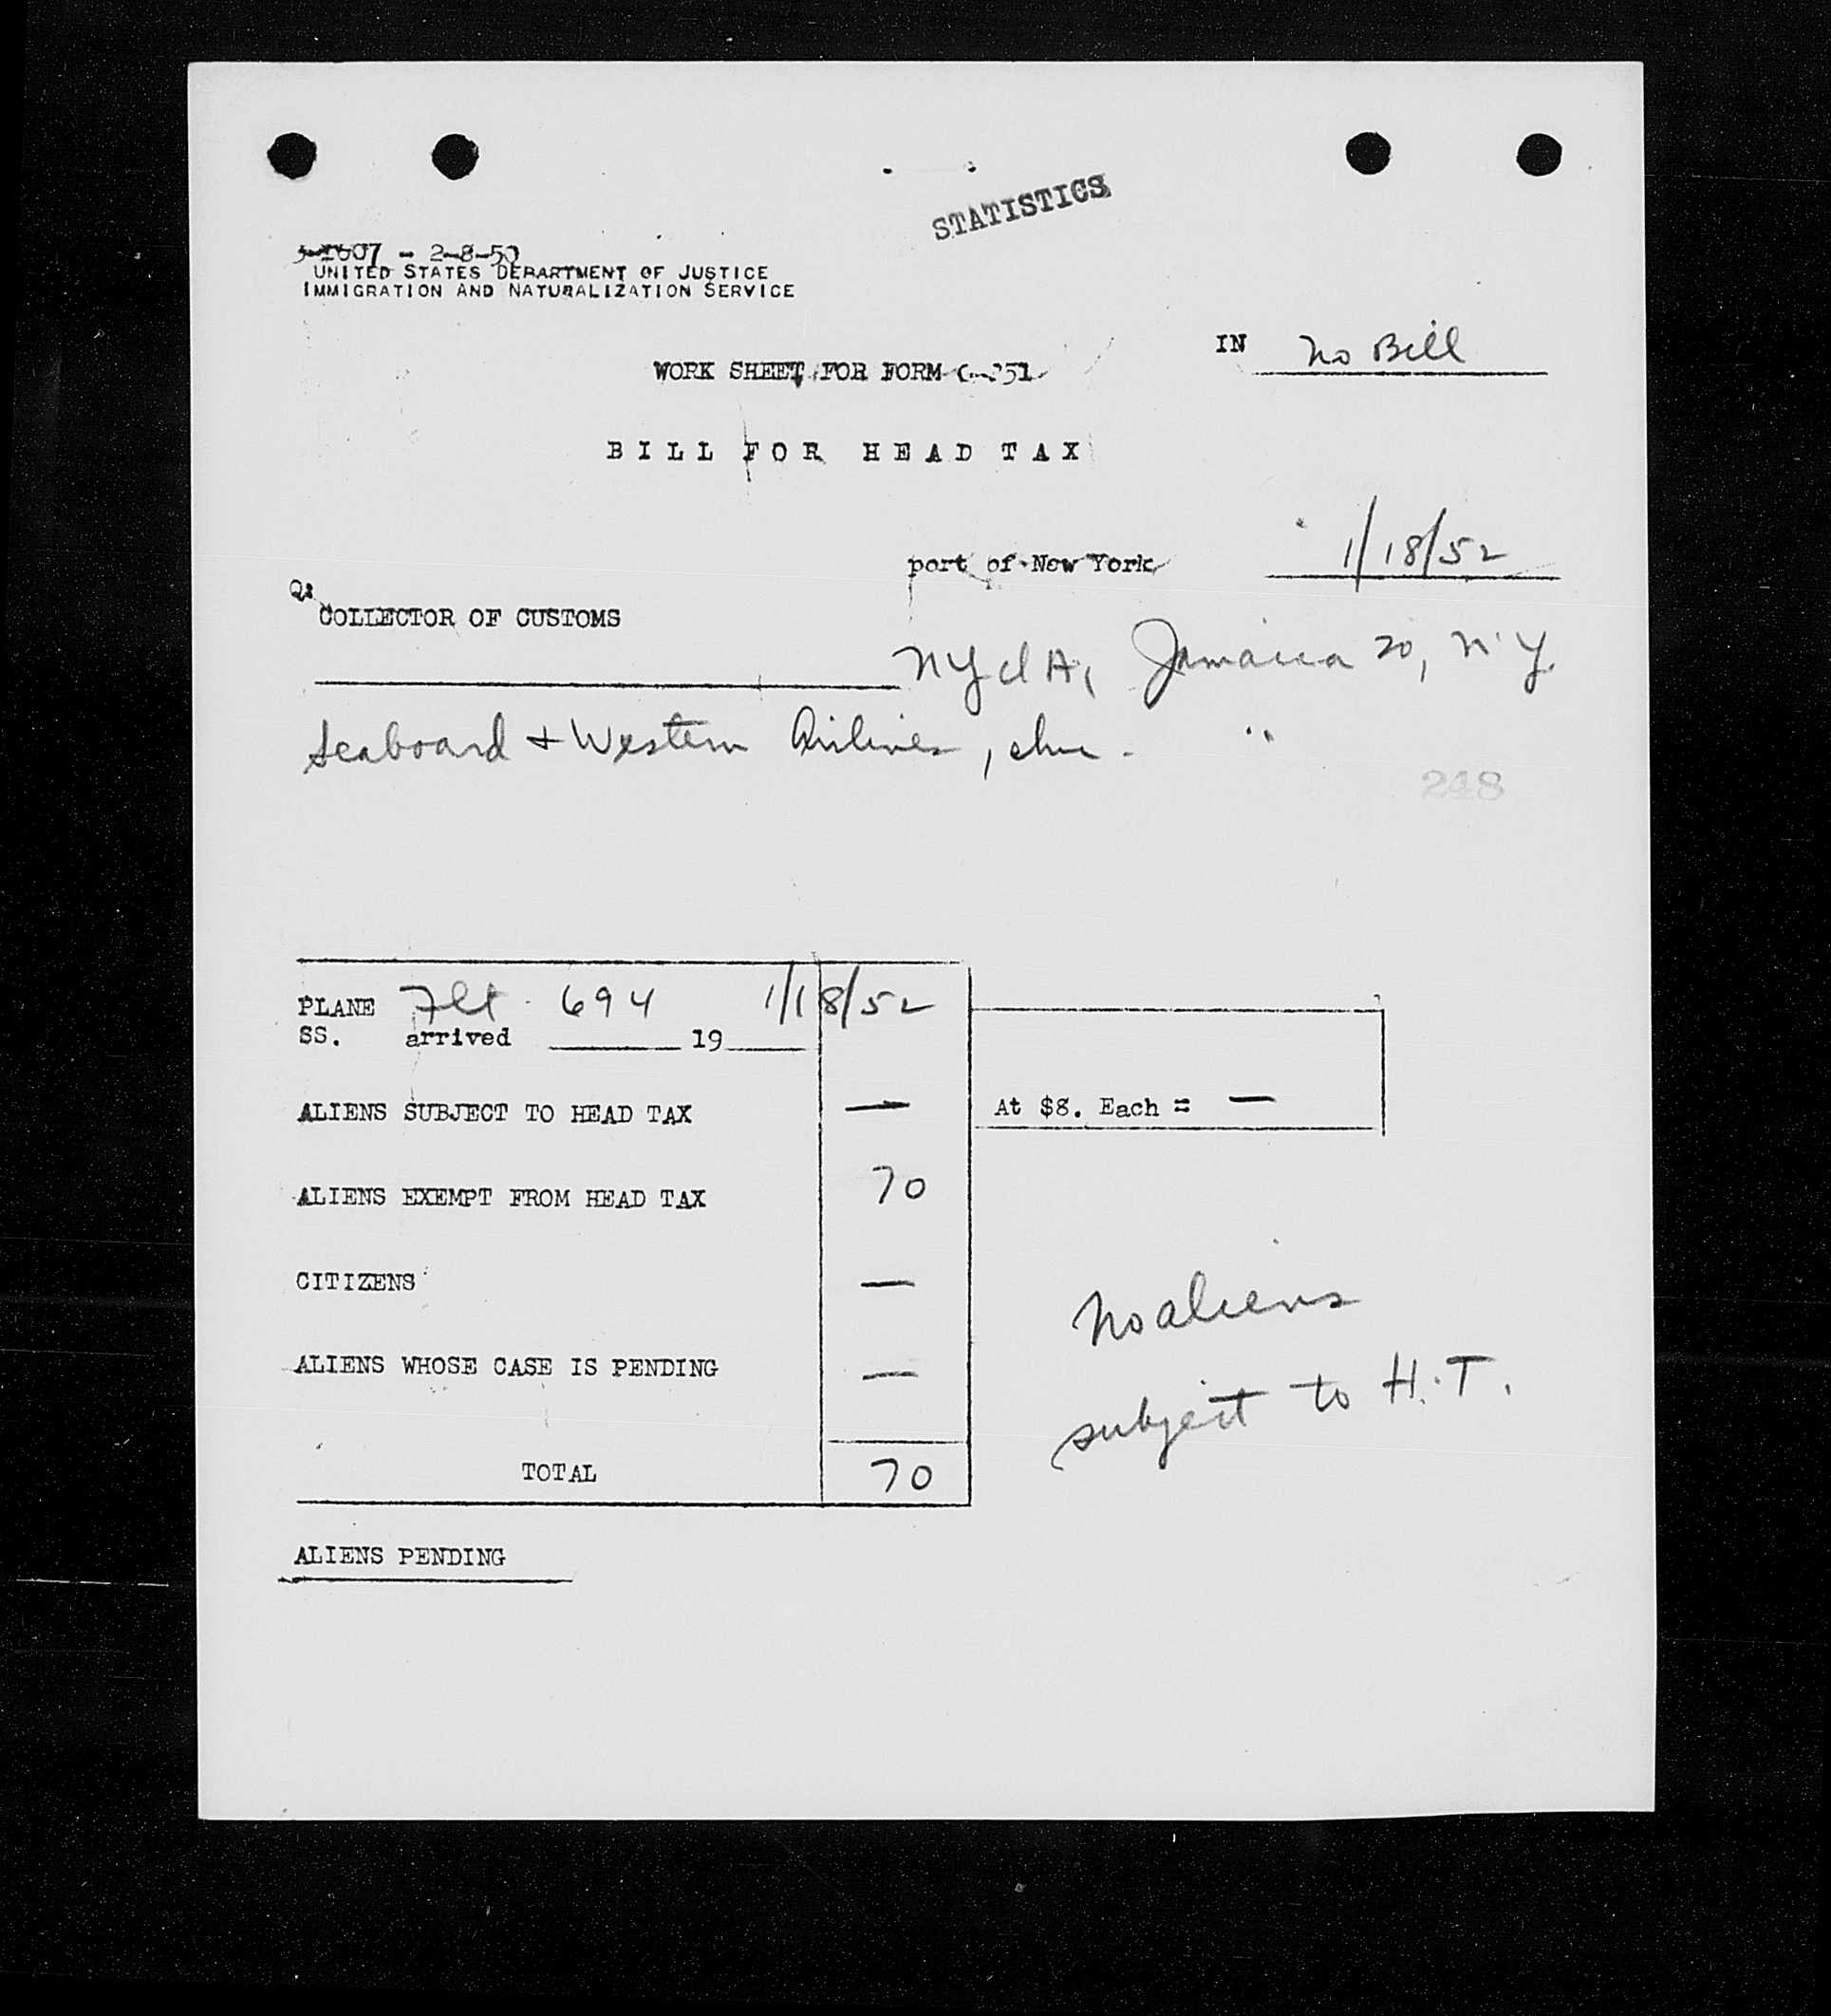 STATISTICS
- 2-8-50
UNITED STATES DEPARTMENT OF JUSTICE
IMMIGRATION AND NATURALIZATION SERVICE
IN No Bill
WORK SHEET FOR FORM
BILL FOR HEAD TAX
port of New York 1/18/52
COLLECTOR OF CUSTOMS
NYIA, Jamaica 20, N.Y.
Seaboard & Western Airlines, Inc. "
248
PLANE Flt 694 1/18/52
SS. arrived 19
ALIENS SUBJECT TO HEAD TAX — At $8. Each = —
ALIENS EXEMPT FROM HEAD TAX 70
CITIZENS —
No aliens
ALIENS WHOSE CASE IS PENDING —
subject to H.T.
TOTAL 70
ALIENS PENDING